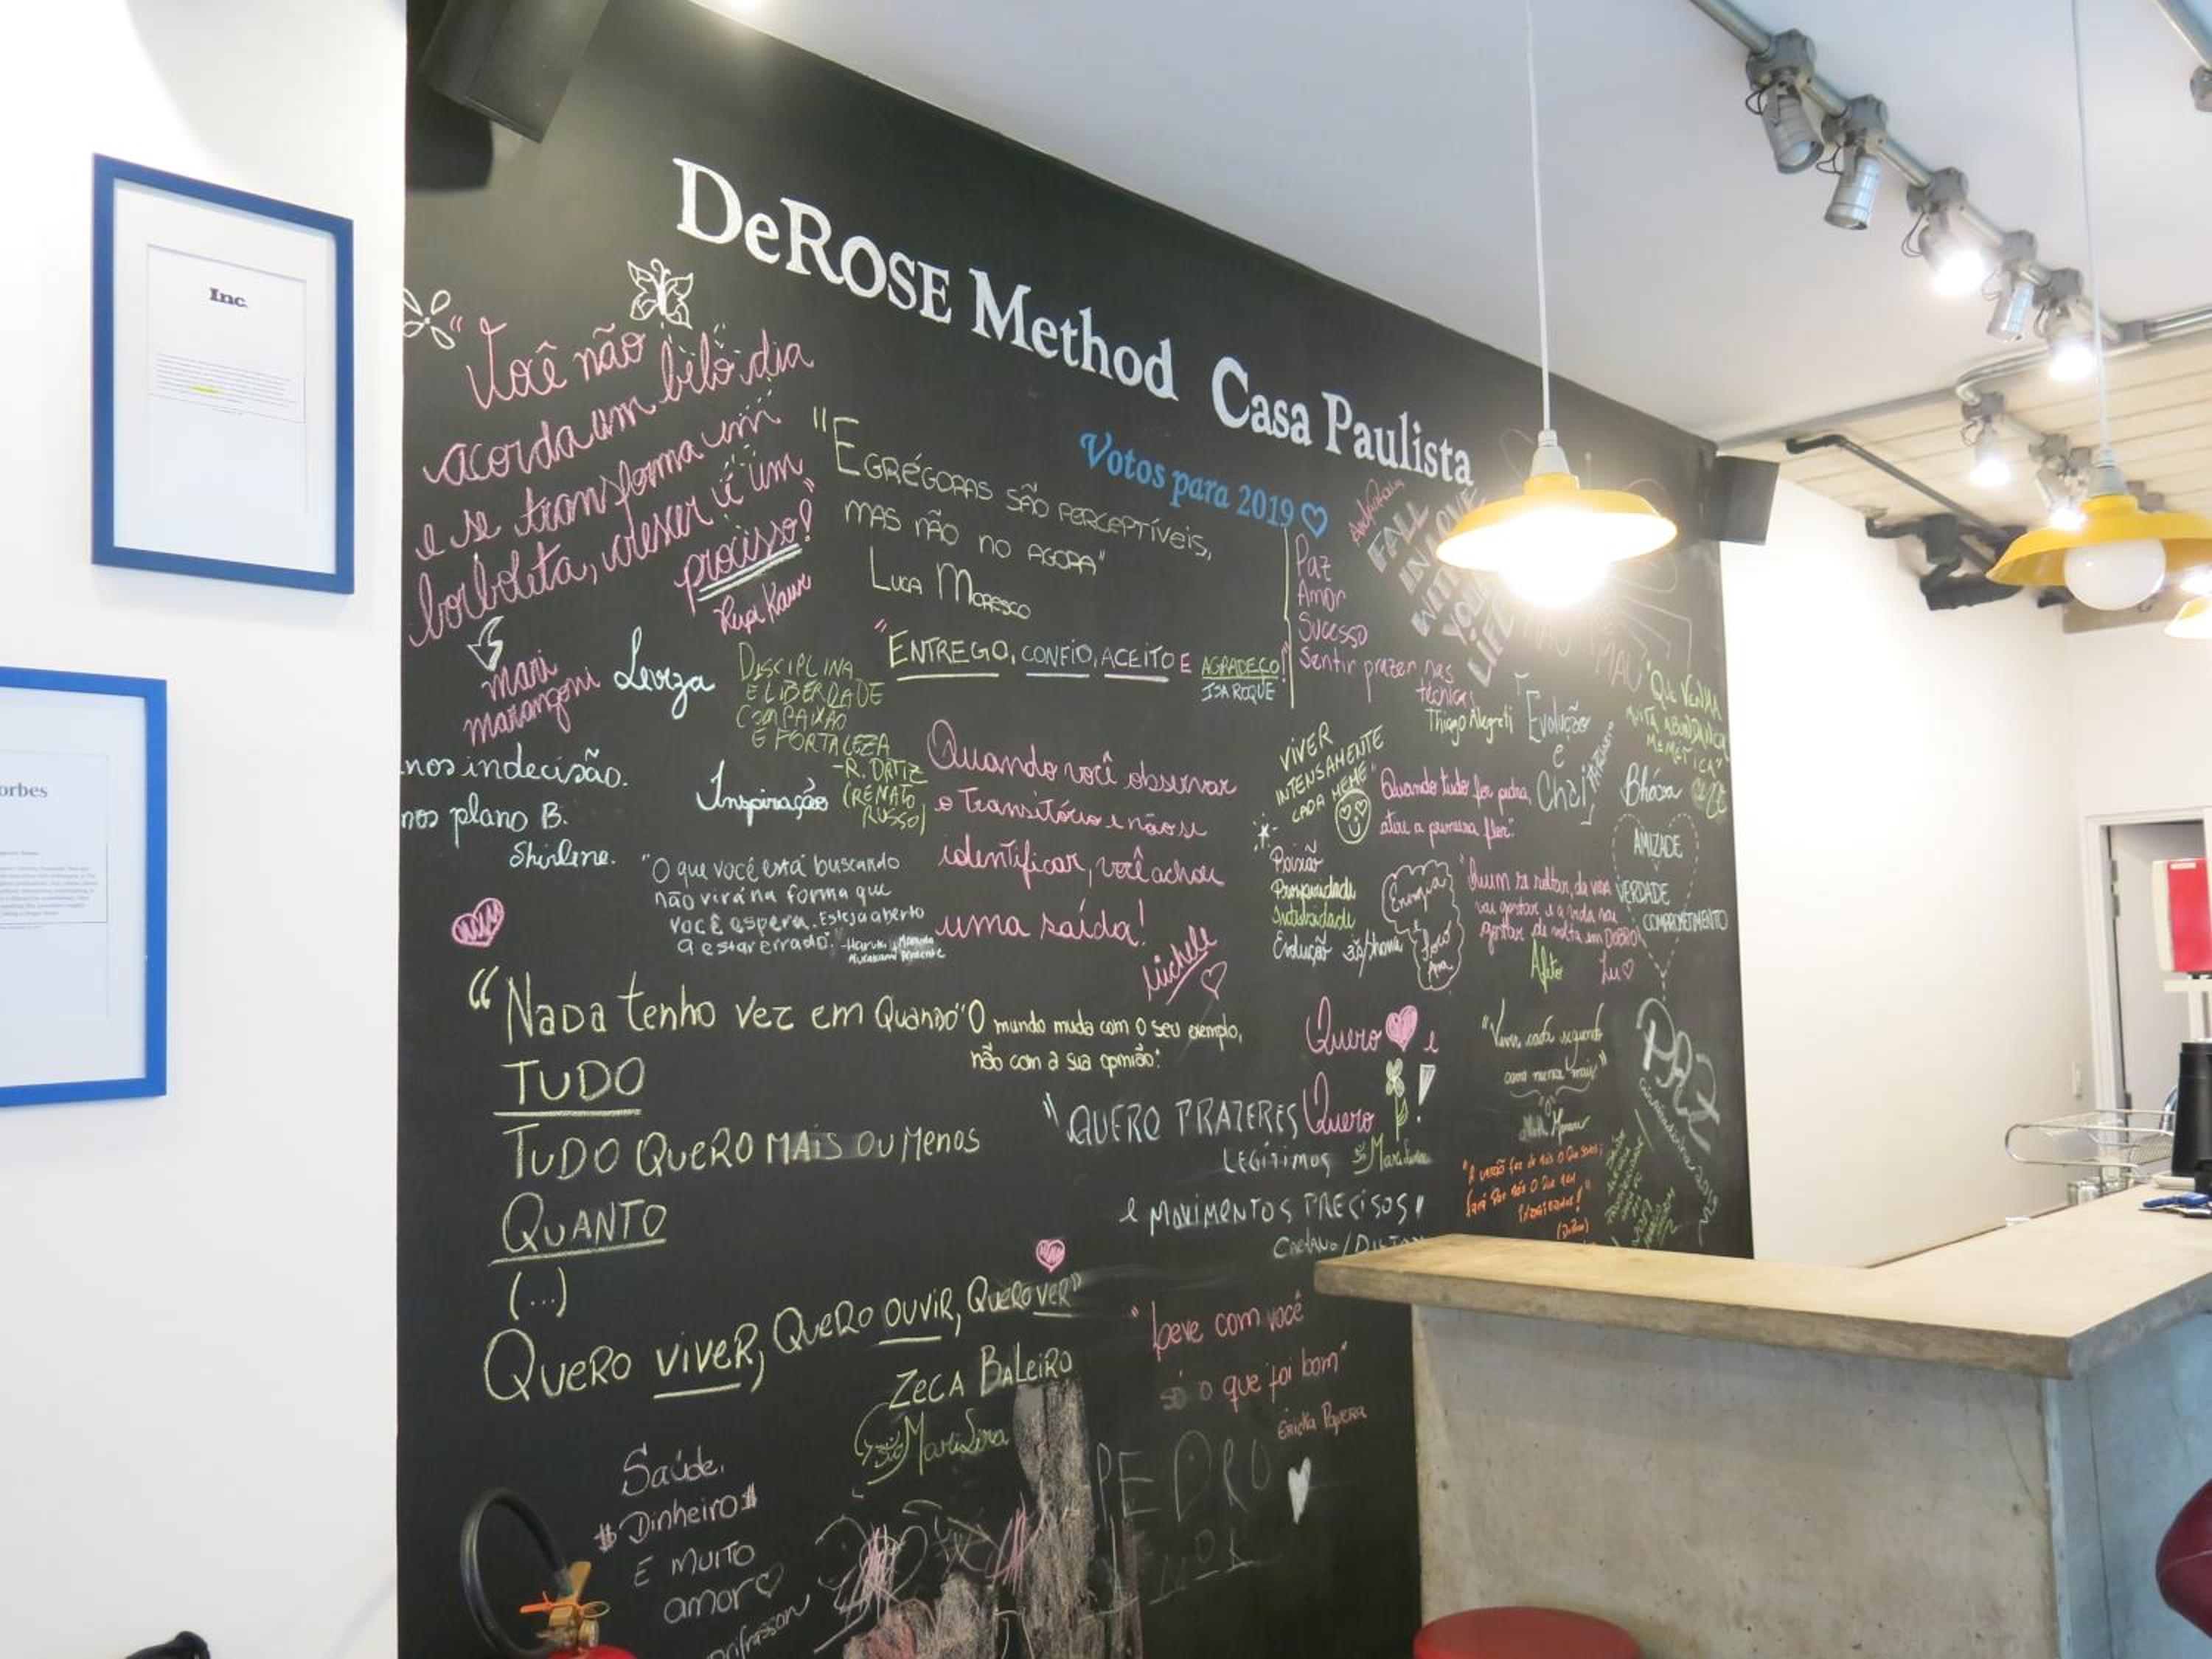 Inc.
orbes
DeROSE Method Casa Paulista
Votos para 2019
"Você não
acorda um belo dia
e se transforma um
borboleta, crescer é um
processo!"
Rupi Kaur
Mari
marangoni
Leveza
DISCIPLINA
E LIBERDADE
COMPAIXÃO
E FORTALEZA
-R. ORTIZ
(RENATO
RUSSO)
"EGRÉGORAS SÃO PERCEPTÍVEIS,
MAS NÃO NO AGORA"
LUCA MORESCO
"ENTREGO, CONFIO, ACEITO E AGRADEÇO!"
ISA ROQUE
Paz
Amor
Sucesso
Sentir prazer nas
técnicas
Thiago Alegreti
FALL
IN LOVE
WITH
YOUR
LIFE
Evolução
e
Chai
"QUE VENHA
nos indecisão.
nos plano B.
Shirlene.
Inspiração
Quando você observar
o Transitório e não se
identificar, você achou
uma saída!
Michele
"O que você está buscando
não virá na forma que
você espera. Esteja aberto
a estar errado."
VIVER
INTENSAMENTE
CADA MEME
"Quando tudo for pedra,
atire a primeira flor."
Paixão
Prosperidade
Evolução
Energia
Bhása
AMIZADE
VERDADE
COMPROMETIMENTO
Afeto
Lu
"Nada tenho vez em Quando
TUDO
TUDO QUERO MAIS OU Menos
QUANTO
(...)
Quero viver, Quero ouvir, Quero ver"
Zeca Baleiro
Mari Lira
"O mundo muda com o seu exemplo,
não com a sua opinião."
Quero e
Quero !
"QUERO PRAZERES
LEGÍTIMOS
e MOVIMENTOS PRECISOS"
PAZ
"leve com você
só o que foi bom"
PEDRO
Saúde,
$ Dinheiro $
E MUITO
amor